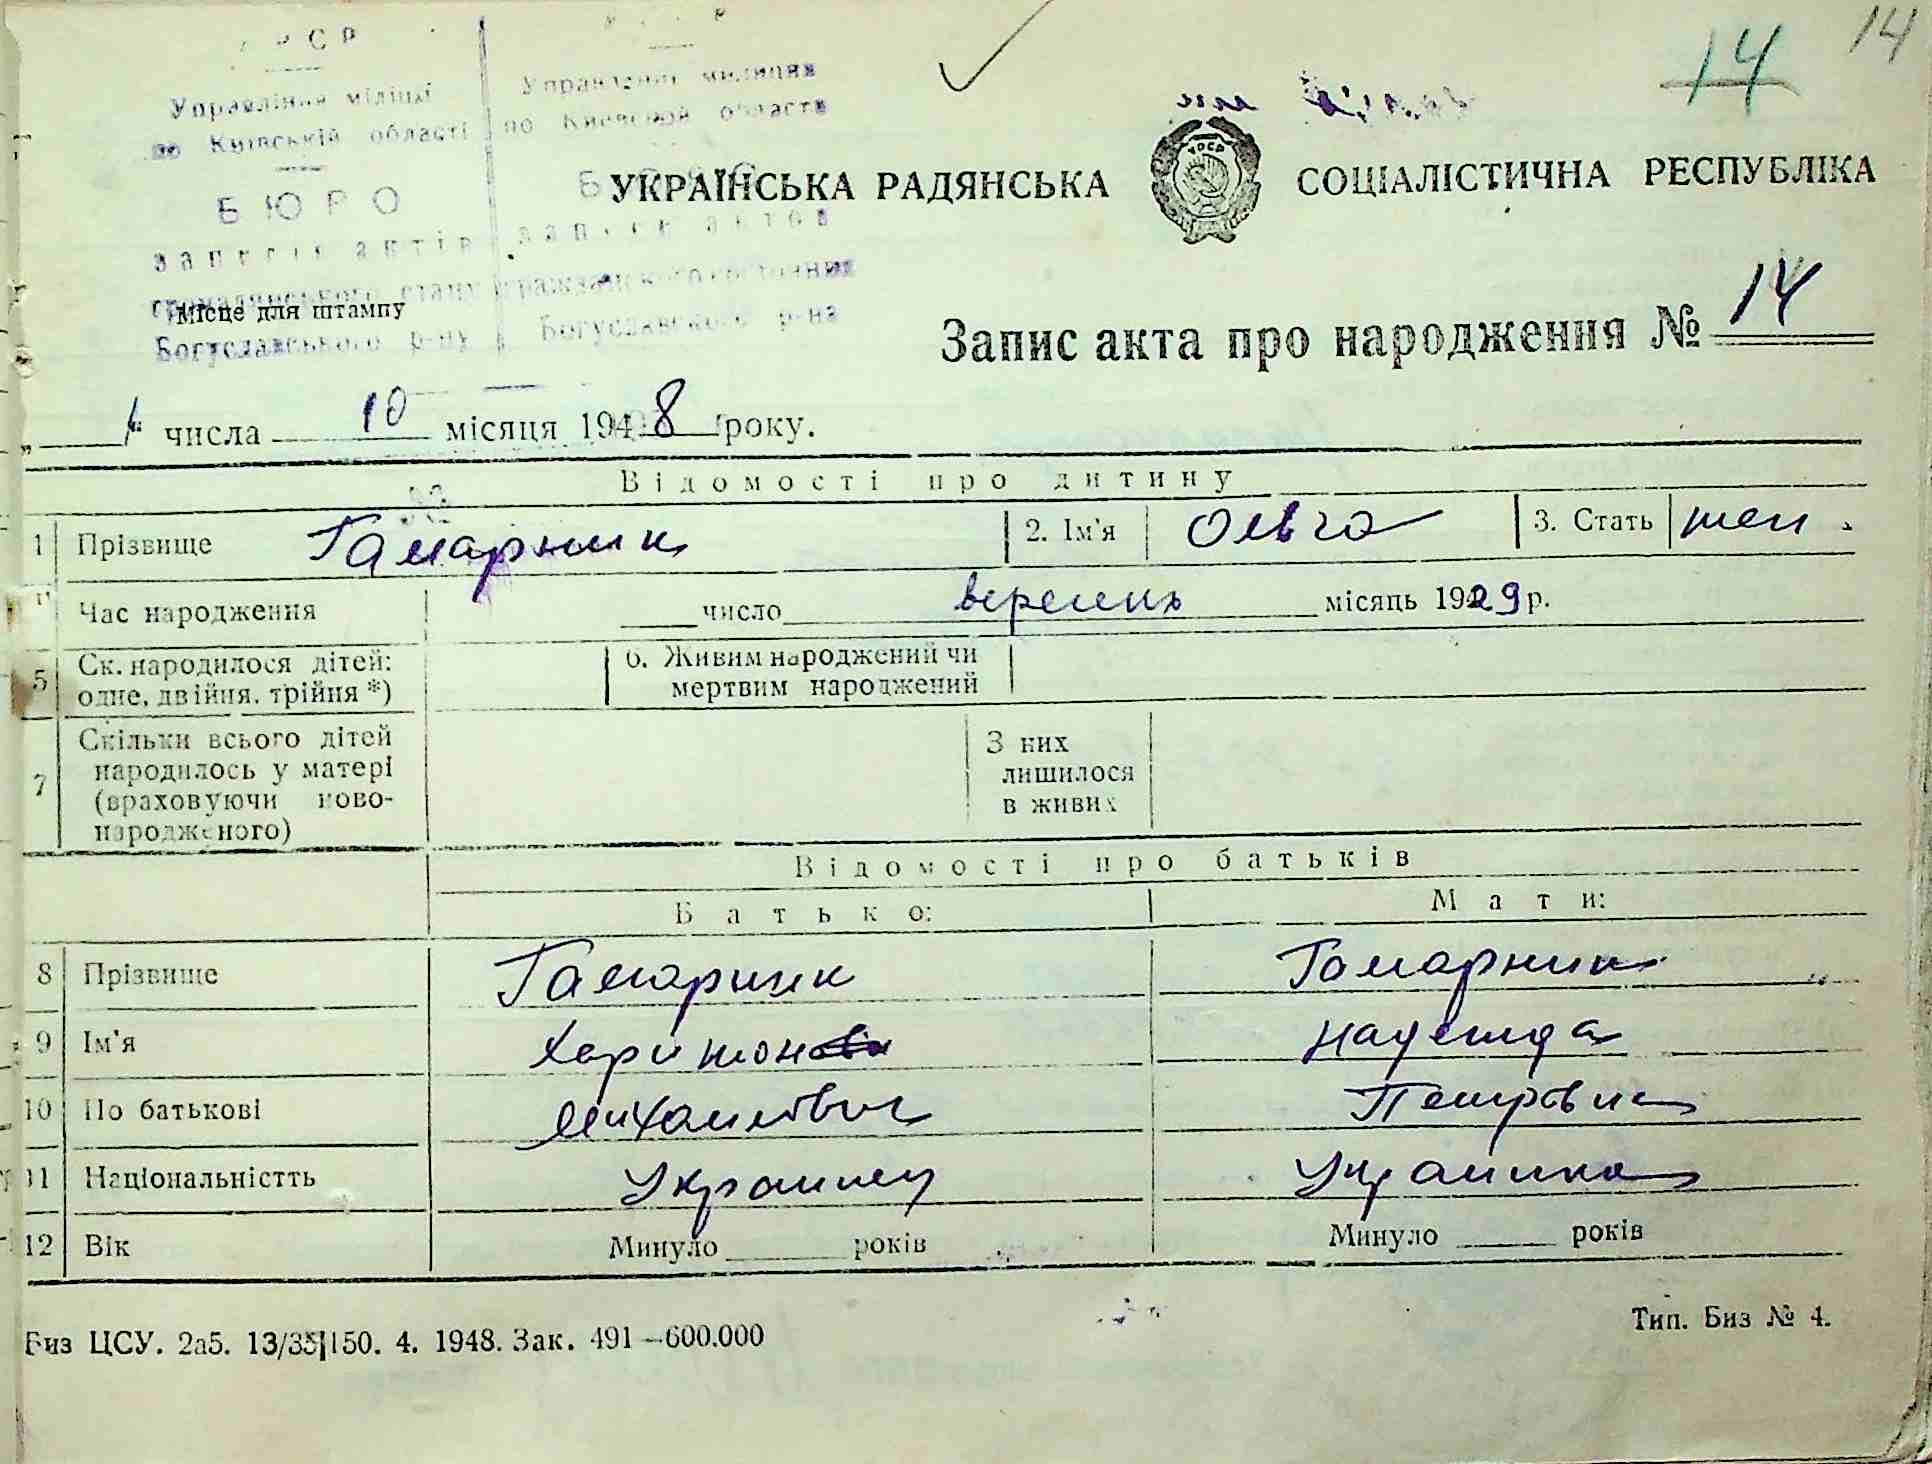 14
14
Управління міліції
по Київській області
БЮРО
записів актів
громадянського стану
Богуславського р-ну
Управление милиции
по Киевской области
записи актов
гражданского состояния
Богуславского р-на
УКРАЇНСЬКА РАДЯНСЬКА СОЦІАЛІСТИЧНА РЕСПУБЛІКА
УРСР
Місце для штампу
Запис акта про народження № 14
„ 1 " числа 10 місяця 1948 року.
Відомості про дитину
1 Прізвище Гамарник 2. Ім'я Ольга 3. Стать жен.
Час народження число вересень місяць 1929 р.
5 Ск. народилося дітей: одне, двійня, трійня *) 6. Живим народжений чи мертвим народжений
7 Скільки всього дітей народилось у матері (враховуючи новонародженого) З них лишилося в живих
Відомості про батьків
Батько: Мати:
8 Прізвище Гамарник Гамарник
9 Ім'я Харитон Надежда
10 По батькові Михайлович Петровна
11 Національністть Украинец Украинка
12 Вік Минуло років Минуло років
Биз ЦСУ. 2а5. 13/35 150. 4. 1948. Зак. 491—600.000
Тип. Биз № 4.